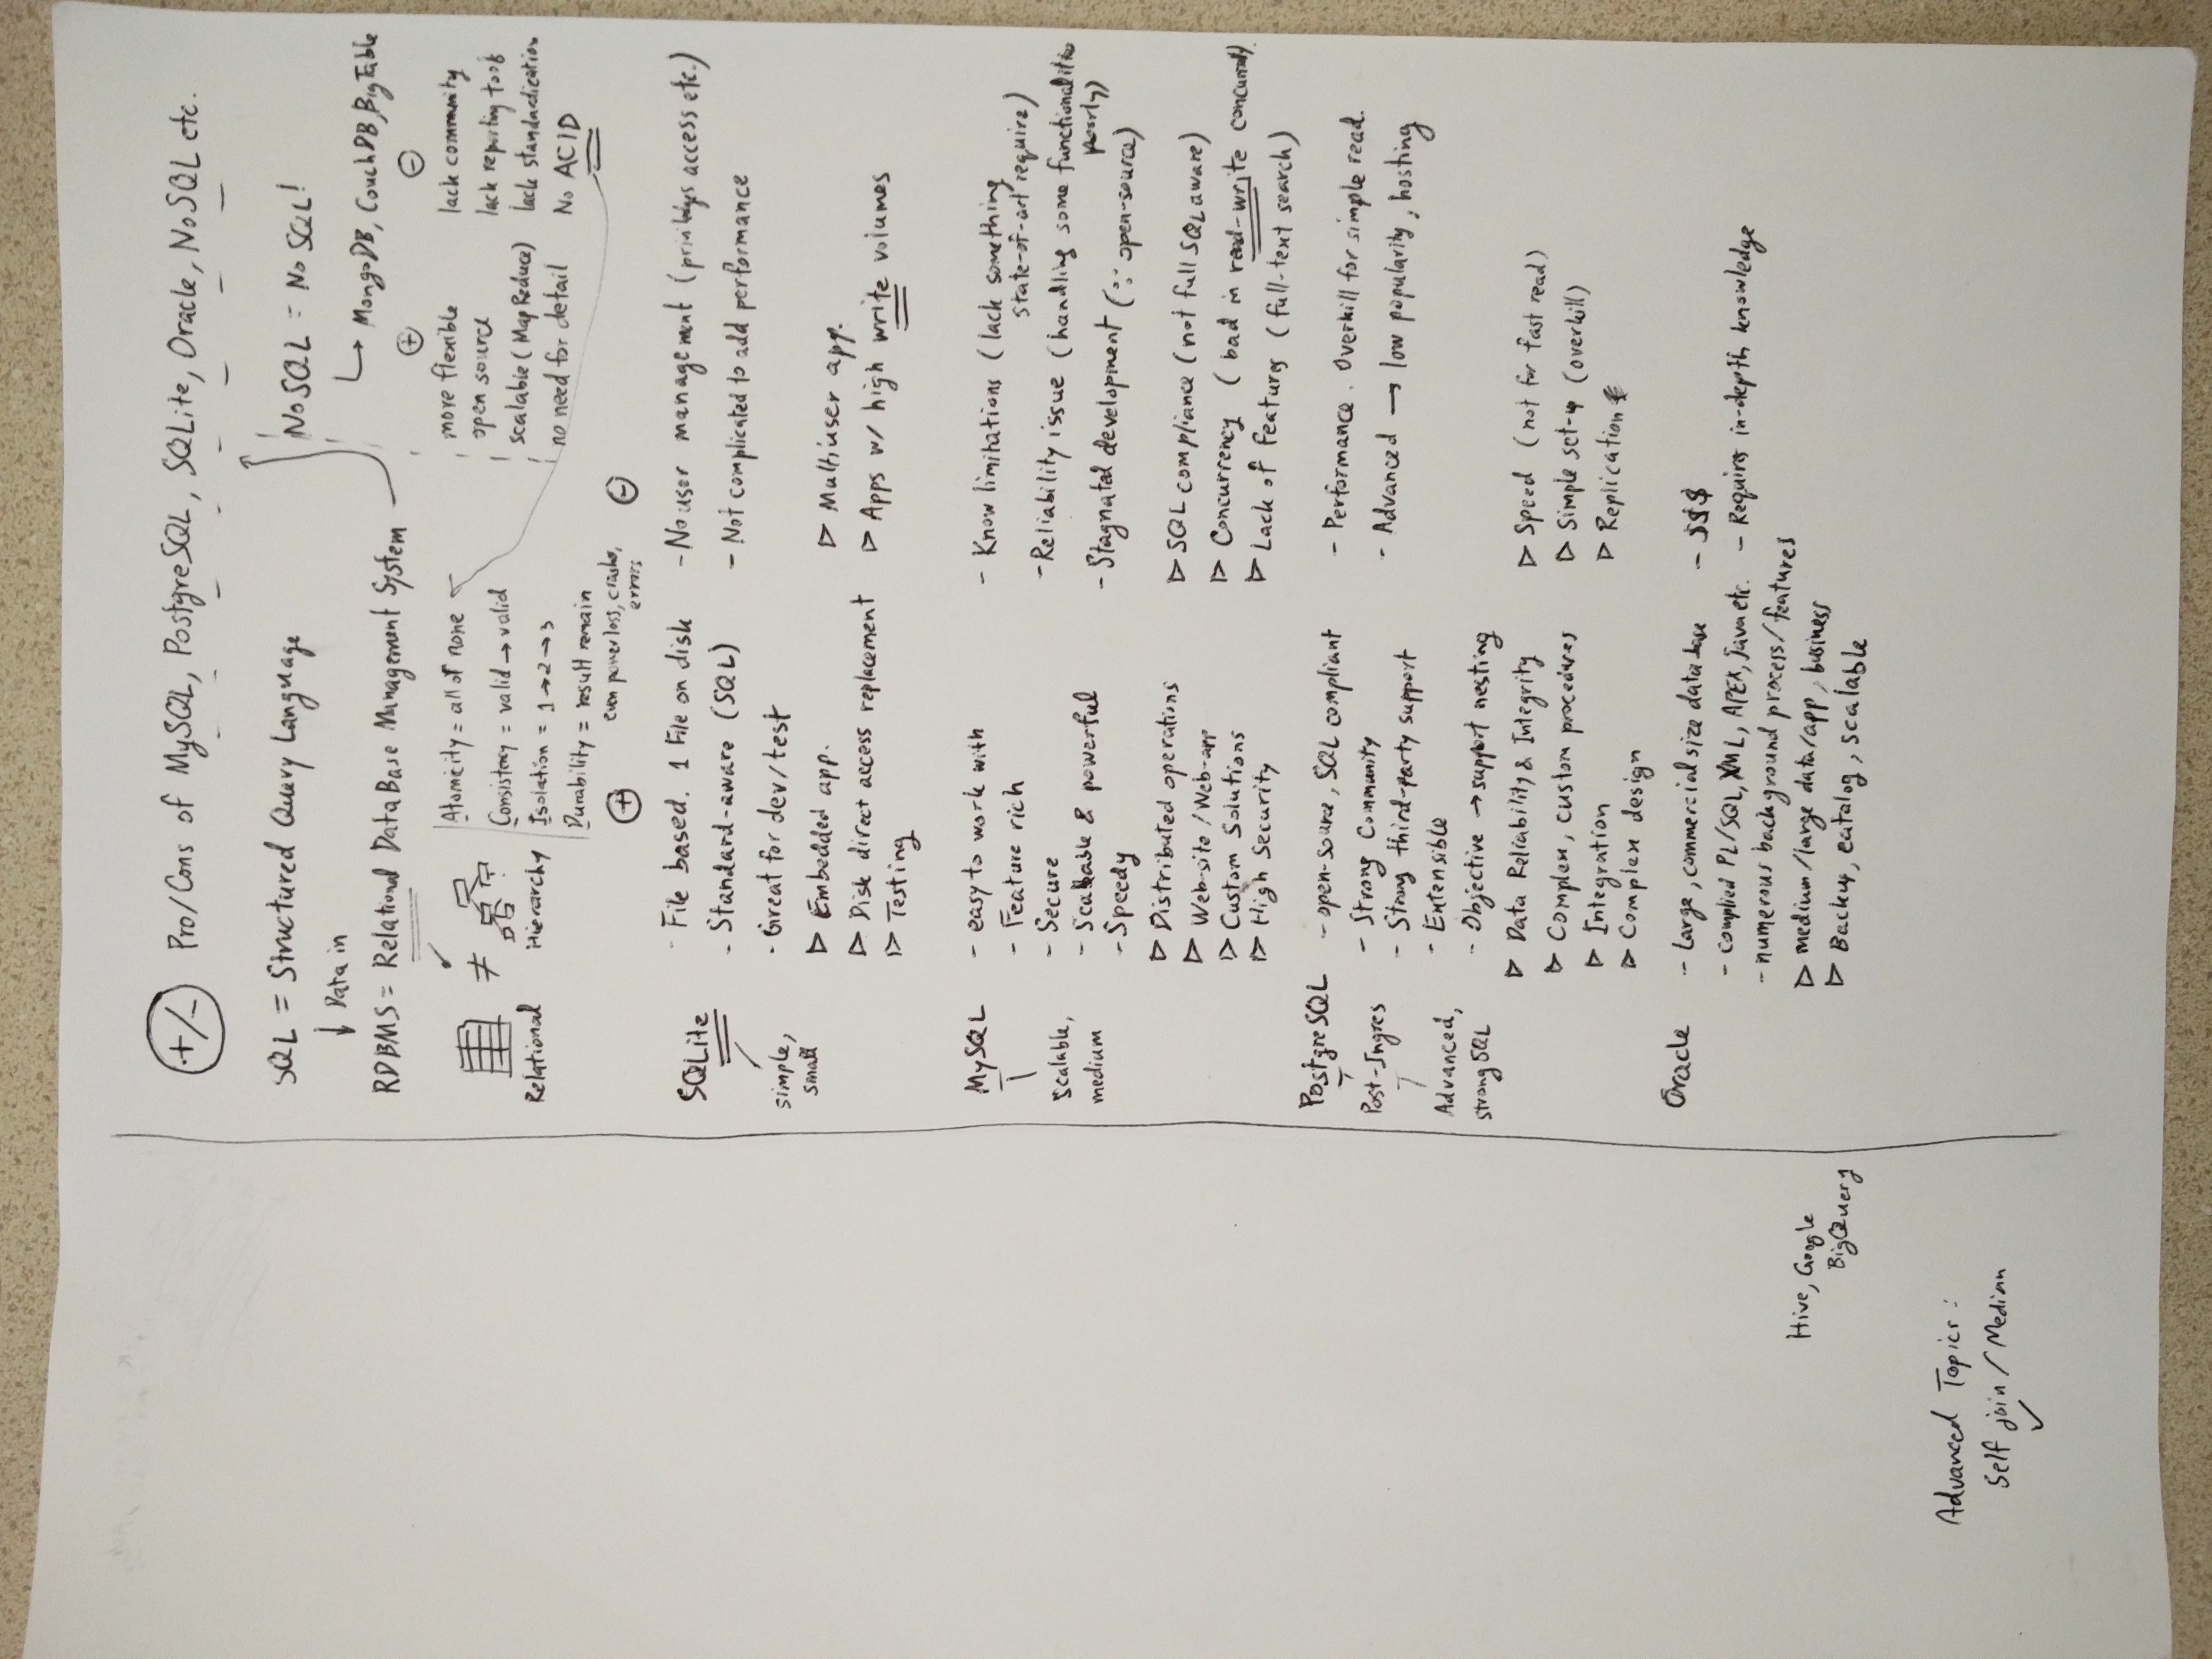 +/- Pro/Cons of MySQL, PostgreSQL, SQLite, Oracle, NoSQL etc.
SQL = Structured Query Language
↓ Data in
RDBMS = Relational DataBase Management System
NoSQL = No SQL!
→ MongoDB, CouchDB, BigTable
+
more flexible
open source
scalable (MapReduce)
no need for detail
-
lack community
lack reporting tools
lack standardication
No ACID
✓
≠
Relational
Hierarchy
Atomicity = all or none
Consistency = valid → valid
Isolation = 1 → 2 → 3
Durability = result remain
even power loss, crashes,
errors
+
-
SQLite
simple,
small
- File based. 1 File on disk
- Standard-aware (SQL)
- Great for dev/test
▷ Embedded app.
▷ Disk direct access replacement
▷ Testing
- No user management (privileges access etc.)
- Not complicated to add performance
▷ Multiuser app.
▷ Apps w/ high write volumes
MySQL
Scalable,
medium
- easy to work with
- Feature rich
- Secure
- Scalable & powerful
- Speedy
▷ Distributed operations
▷ Web-site / Web-app
▷ Custom Solutions
▷ High Security
- Know limitations (lack something
state-of-art require)
- Reliability issue (handling some functionalities
poorly)
- Stagnated development (∵ open-source)
▷ SQL compliance (not full SQL aware)
▷ Concurrency (bad in read-write
▷ Lack of features (full-text search)
PostgreSQL
Post-Ingres
Advanced,
strong SQL
- open-source, SQL compliant
- Strong Community
- Strong third-party support
- Extensible
- Objective → support nesting
▷ Data Reliability & Integrity
▷ Complex, custom procedures
▷ Integration
▷ Complex design
- Performance. Overkill for simple read.
- Advanced → low popularity, hosting
▷ Speed (not for fast read)
▷ Simple set-up (overkill)
▷ Replication
Oracle
- Large, commercial size database
- complied PL/SQL, XML, APEX, Java etc.
- numerous background process/features
▷ medium/large data/app, business
▷ Backup, catalog, scalable
- $$$
- Requires in-depth knowledge
Hive, Google
BigQuery
Advanced Topics:
Self join / Median
✓